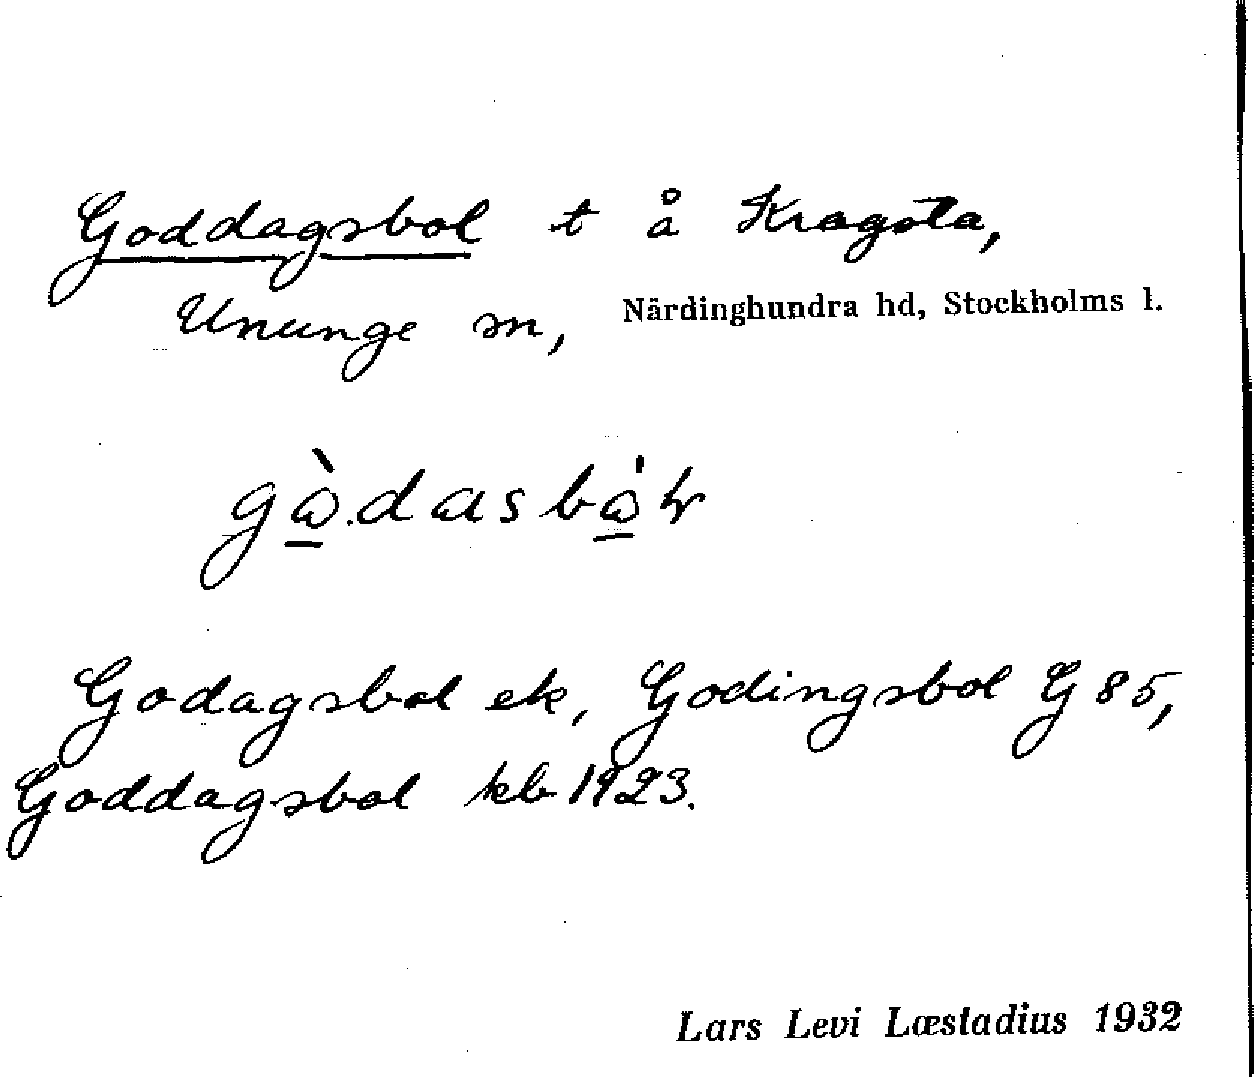 Goddagsbol t å Kragsta,
Ununge sn, Närdinghundra hd, Stockholms l.
Godagsbol ek, Godingsbol G 85,
Goddagsbol kb 1923.
Lars Levi Læstadius 1932